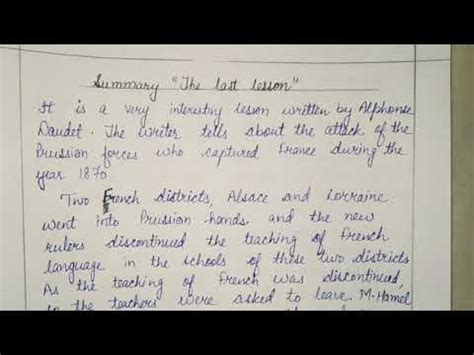 Summary "The last lesson"
It is a very interesting lesson written by Alphonse
Daudet. The writer tells about the attack of the
Prussian forces who captured France during the
year 1870.
Two French districts, Alsace and Lorraine
went into Prussian hands and the new
rulers discontinued the teaching of French
language in the schools of these two districts
As the teaching of French was discontinued,
the teachers were asked to leave. M. Hamel